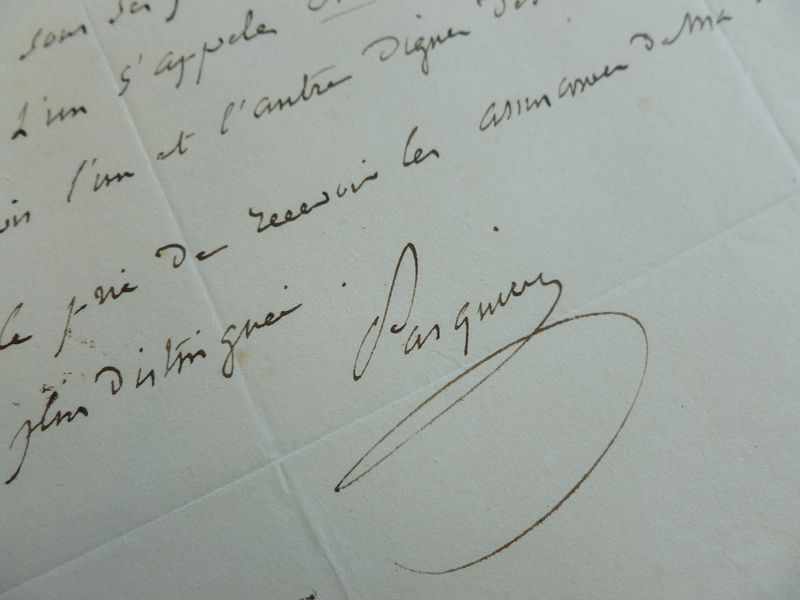 sous ses
L'un s'appelle
l'un et l'autre dignes de
le prie de recevoir les assurances de ma
plus distinguée. Pasquier